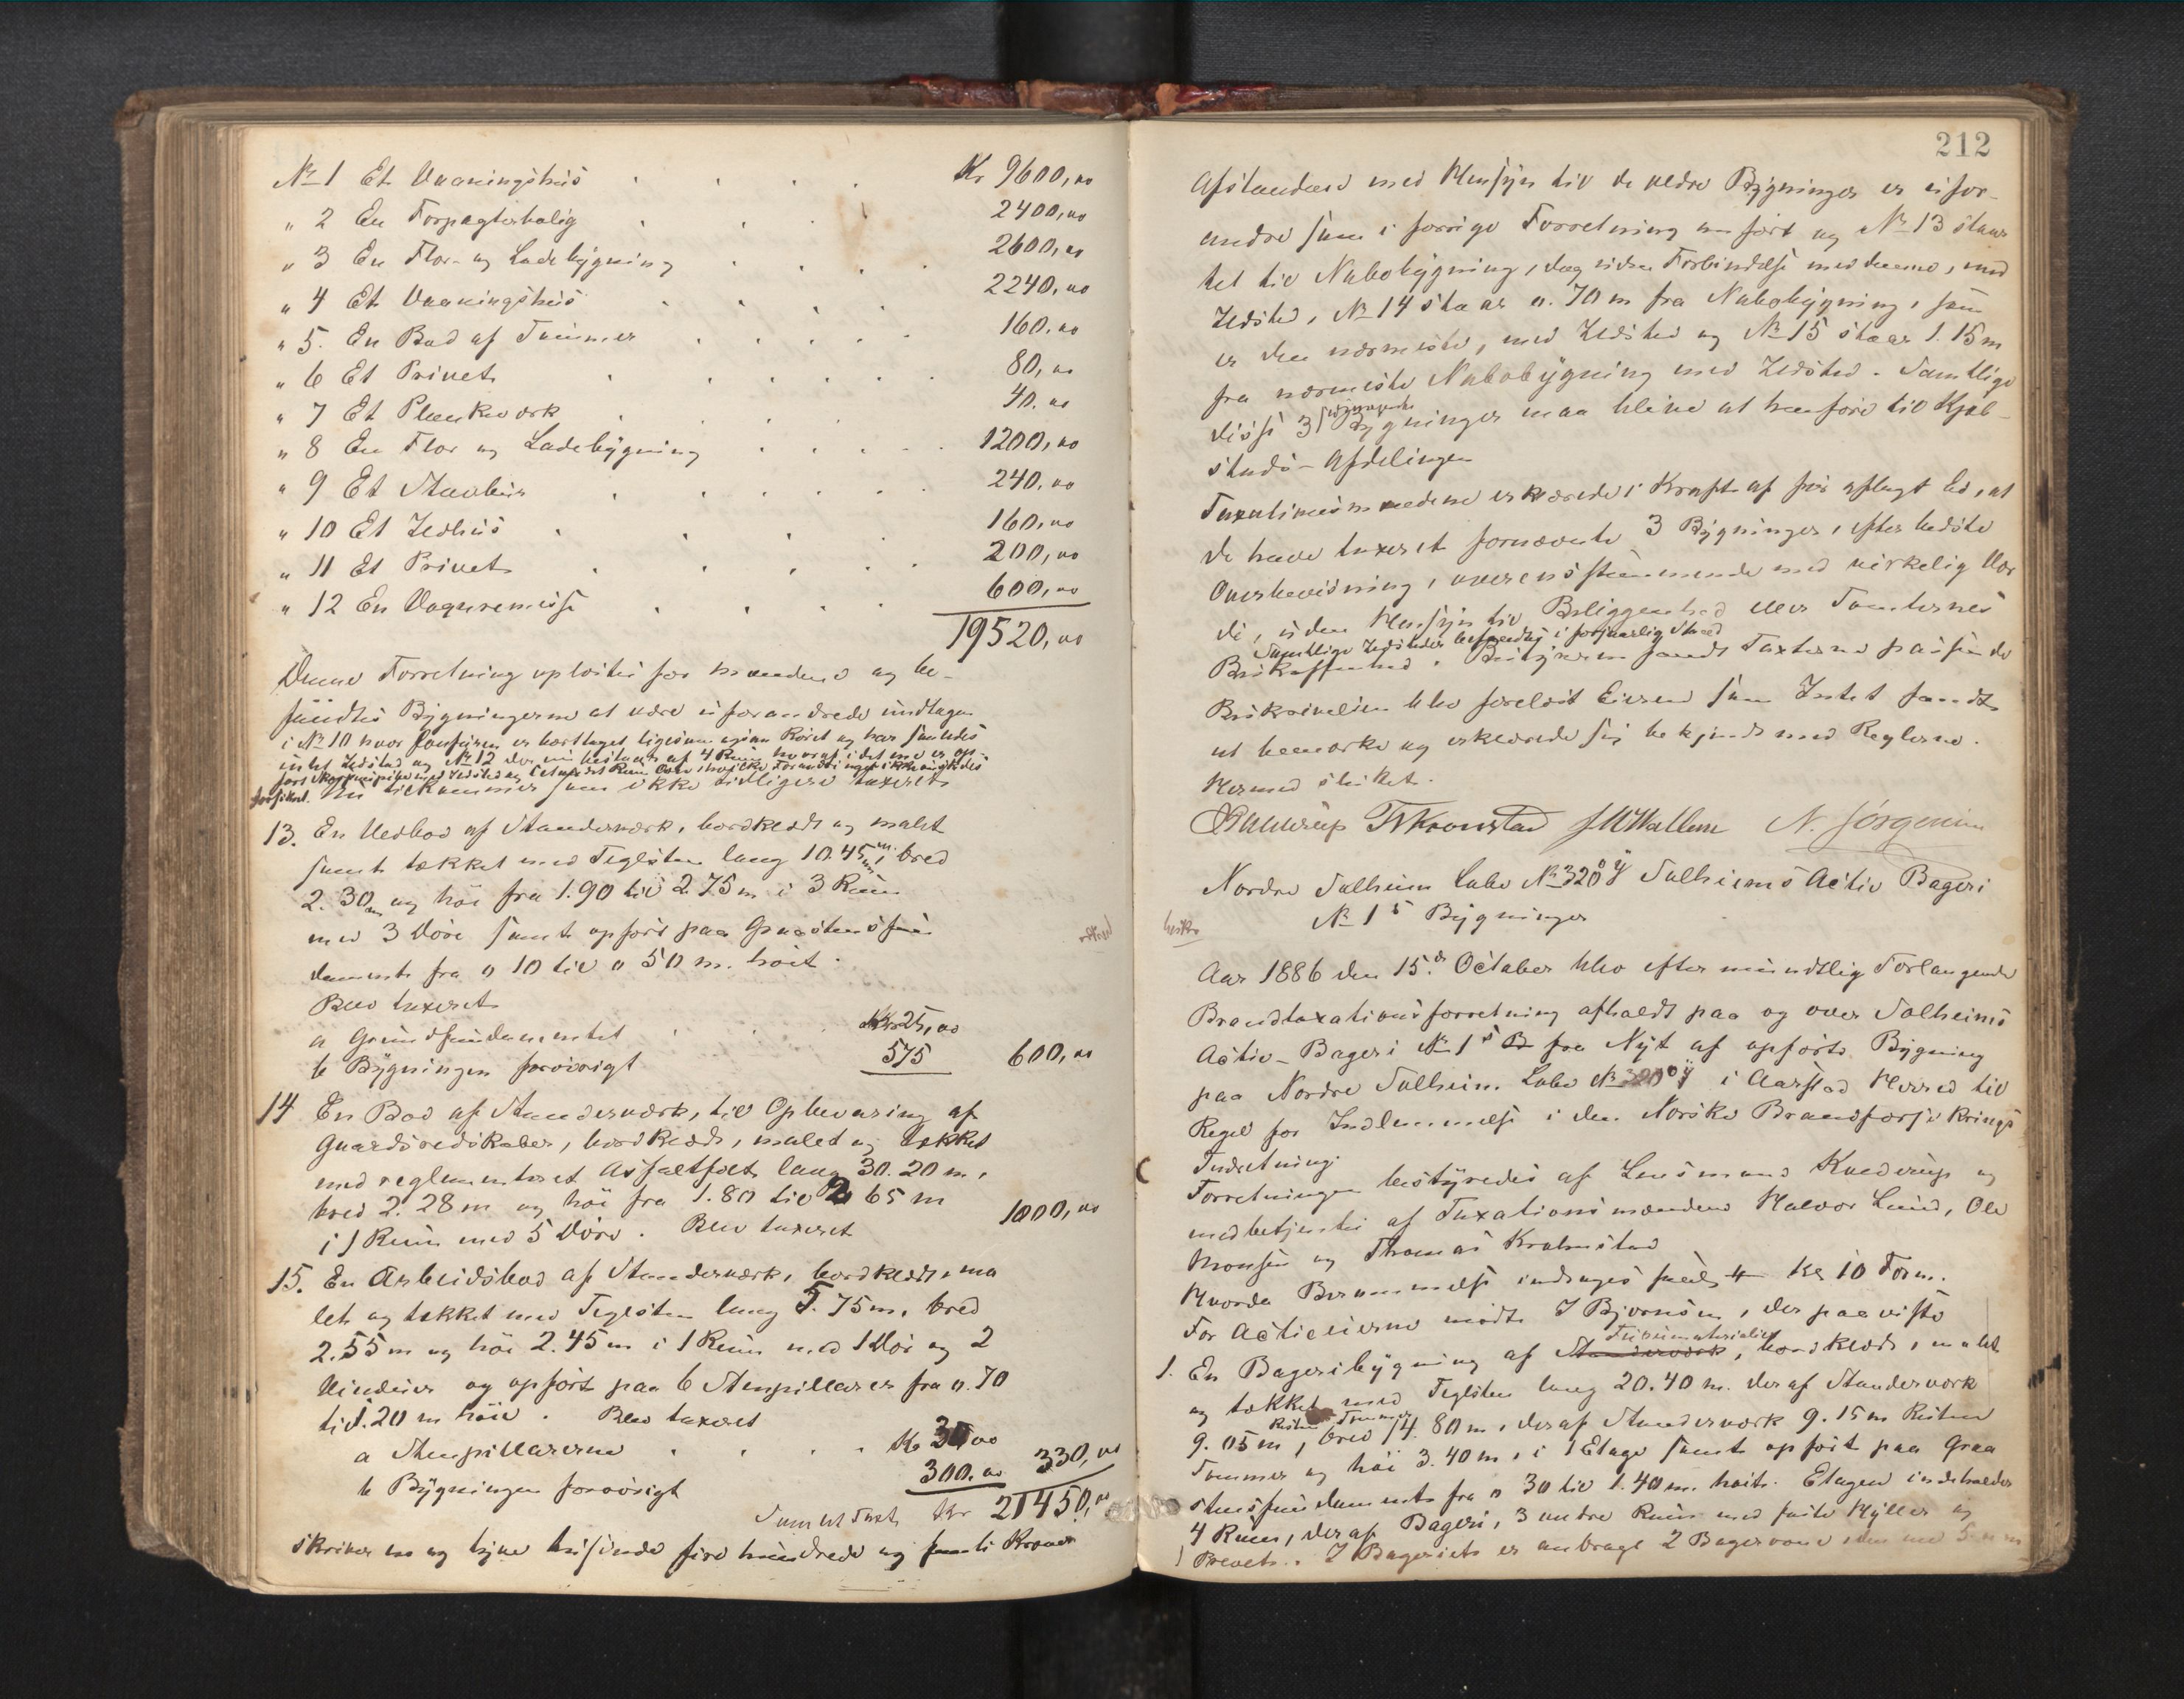 No 1 Et Vaaningshus . . . . Kr 9600,00
" 2 En Forpagterbolig . . . 2400,00
" 3 En Flor- og Ladebygning . . . 2600,00
" 4 Et Vaaningshus . . . . 2240,00
" 5. En Bod af Tømmer . . . . 160,00
" 6 Et Privet . . . . . 80,00
" 7 Et Plankeværk . . . 40.00
" 8 En Flor og Ladebygning . . . . 1200,00
" 9 Et Stabbur . . . . 240,00
" 10 Et Ildhus . . . . 160,00
" 11 Et Privet . . . . 200,00
" 12 En Vognremisse . . . . 600,00
19520,00
Denne Forretning oplæstes for Mændene og be-
fandtes Bygningerne at være uforandrede undtagen
i No 10 hvor er borttaget ligesom ogsaa Røret og har saaledes
intet Ildsted og No 12 der nu bestaar af 4 Rum, hvoraf i det ene er op-
ført Skorstenspibe med Ildsted og
forsikret. Nu tilkommer som ikke tidligere taxeret
13. En Vedbod af Standerværk, bordklædt og malet
samt tækket med Teglsten lang 10.45 m, bred
2.30 m og høi fra 1.90 til 2.75 m i 3 Rum
med 3 Døre samt opført paa Graastensfun
dament fra 0 10 til 0 50 m. høit.
Blev taxeret
a Grundfundamentet . . . Kr 25,00
b Bygningen forøvrigt 575 600,00
14 En Bod af Standerværk, til Opbevaring af
Gaardsredskaber, bordklædt, malet og tækket
med reglementeret Asfaltfilt lang 30.20 m,
bred 2.28 m og høi fra 1.80 til 2 65 m
i 1 Rum med 5 Døre. Blev taxeret 1000,00
15. En Arbeidsbod af Standerværk, bordklædt, ma
let og tækket med Teglsten lang 5.75 m, bred
2.55 m og høi 2.45 m i 1 Rum med 1 Dør og 2
Vinduer og opført paa 6 Stenpillarer fra 0.70
til 1.20 m høie. Blev taxeret
a Stenpillarerne . . . . Kr 30,00
b Bygningen forøvrigt 300.00 330,00
Samlet Taxt Kr 21450,00
skriver en og tyve tusinde fire hundrede og femti Kroner
212
Afstanden med Hensyn til de ældre Bygninger er ufor-
andre som i forrige Forretning anført og No 13 staar
tæt til Nabobygning, dog uden Forbindelse med denne, med
Ildsted, No 14 staar 0.70 m fra Nabobygning, som
er den nærmeste, med Ildsted og No 15 staar 1.15 m
fra nærmeste Nabobygning med Ildsted. Samtlige
disse 3 sidstnævnte Bygninger maa blive at henføre til Kjøb-
stads-Afdelingen
Taxationsmændene erklærede i Kraft af før aflagt Ed, at
de have taxeret fornævnte 3 Bygninger, efter bedste
Overbevisning, overensstemmende med virkelig Vær
di, uden Hensyn til Beliggenhed eller Tomternes
Samtlige Ildsteder befandtes i forsvarlig Stand
Beskaffenhed. Bestyreren fandt Taxterne passende
Beskrivelsen blev forelæst Eieren som Intet fandt
at bemærke og erklærede sig bekjendt med Reglerne.
Hermed sluttet.
Kuderup TKronstad N. Jörgensen
Nordre Solheim Løbe No 320 ö ÿ Solheims Actie Bageri
No 1 s Bygninger
Aar 1886 den 15.de October blev efter mundtlig Forlangende
Brandtaxationsforretning afholdt paa og over Solheims
Actie-Bageri No 1 s B fra Nyt af opførte Bygning
paa Nordre Solheim Løbe No 320 ö ÿ i Aarstad Herred til
Regel for Indlemmelse i den Norske Brandforsikrings
Indretning.
Forretningen bestyredes af Lensmand Kuderup og
medbetjentes af Taxationsmændene Halvor Lund, Ole
Monsen og Thomas Kronstad
Hvorda Berammelse indtoges Kl 10 Form.
For Actieeierne mødte J Bjørnson, der paaviste
1. En Bageribygning af Standerværk, bordklædt, malet
og tækket med Teglsten lang 20.40 m. deraf Standerværk
9.05 m, bred 14.80 m, deraf Standerværk 9.15 m Resten
Tømmer og høi 3.40 m, i 1 Etage samt opført paa Graa
stensfundament fra 0 30 til 1.40 m. høit. Etagen indeholder
4 Rum, deraf Bageri, 3 andre Rum med faste Hylder og
1 Privet. I Bageriet er anbragt 2 Bagerovne